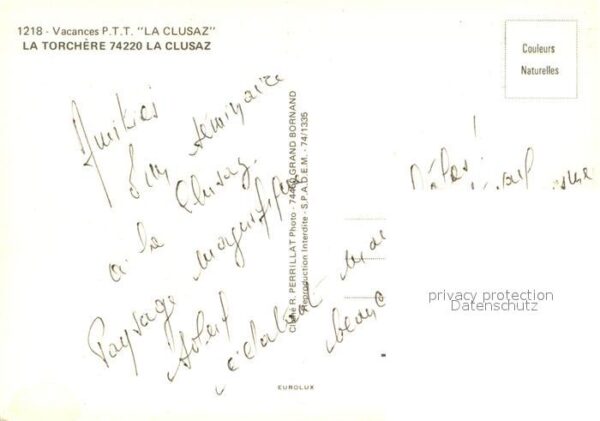 1218 - Vacances P.T.T. "LA CLUSAZ"
LA TORCHÈRE 74220 LA CLUSAZ
Couleurs
Naturelles
Amitiés
d'un séminaire
à la Clusaz.
Paysage magnifique
soleil éclatant mais
Cliché R. PERRILLAT Photo - 74450 GRAND BORNAND
Reproduction Interdite - S.P.A.D.E.M. - 74/1335
privacy protection
Datenschutz
EUROLUX